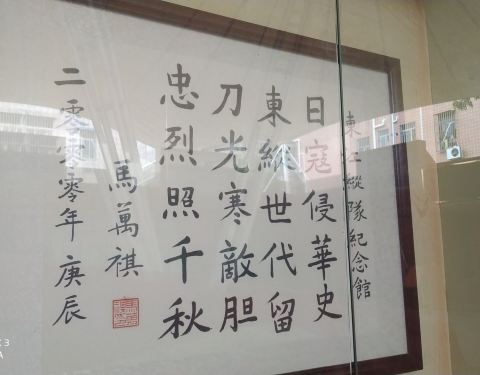 東江縱隊紀念館
日寇侵華史
東縱世代留
刀光寒敵胆
忠烈照千秋
馬萬祺
二零零零年庚辰